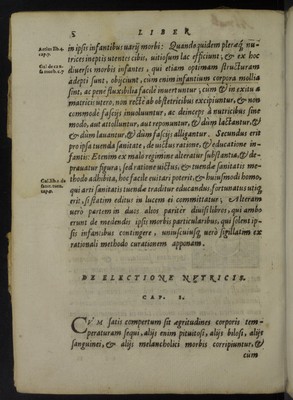 LIBER
in ipsis infantibus uarij morbi: Quandoquidem pleraq; nu-
trices ineptis utentes cibis, uitiosum lac efficiunt, & ex hoc
diuersis morbis infantes, qui etiam optimam structuram
adepti sunt, obijciunt, cum enim infantium corpora mollia
sint, ac pene fluxibilia facile inuertuntur; cum & in exitu a
matricis utero, non recte ab obstetricibus excipiuntur, & non
commode fascijs inuoluuntur, ac deinceps à nutricibus sine
modo, aut attolluntur, aut reponuntur, & dum lactantur, &
& dum lauantur, & dum fascijs alligantur. Secundus erit
pro ipsa tuenda sanitate, de uictus ratione, & educatione in-
fantis: Etenim ex malo regimine alteratur substantia, & de-
prauatur figura; sed ratione uictus, & tuendæ sanitatis me-
thodo adhibita, hoc facile euitari poterit, & huiusmodi homo,
qui arti sanitatis tuendæ traditur educandus fortunatus utiq;
erit, si statim editus in lucem ei committatur; Alteram
uero partem in duos alios pariter diuisi libros, qui ambo
erunt de medendis ipsis morbis particularibus, qui solent ip-
sis infantibus contingere, uniuscuiusq; uerò sigillatim ex
rationali methodo curationem apponam.
DE ELECTIONE NVTRICIS.
CAP. I.
CVM satis compertum sit ægritudines corporis tem-
peraturam sequi, alijs enim pituitosi, alijs biliosi, alijs
sanguinei, & alijs melancholici morbis corripiuntur, &
cùm